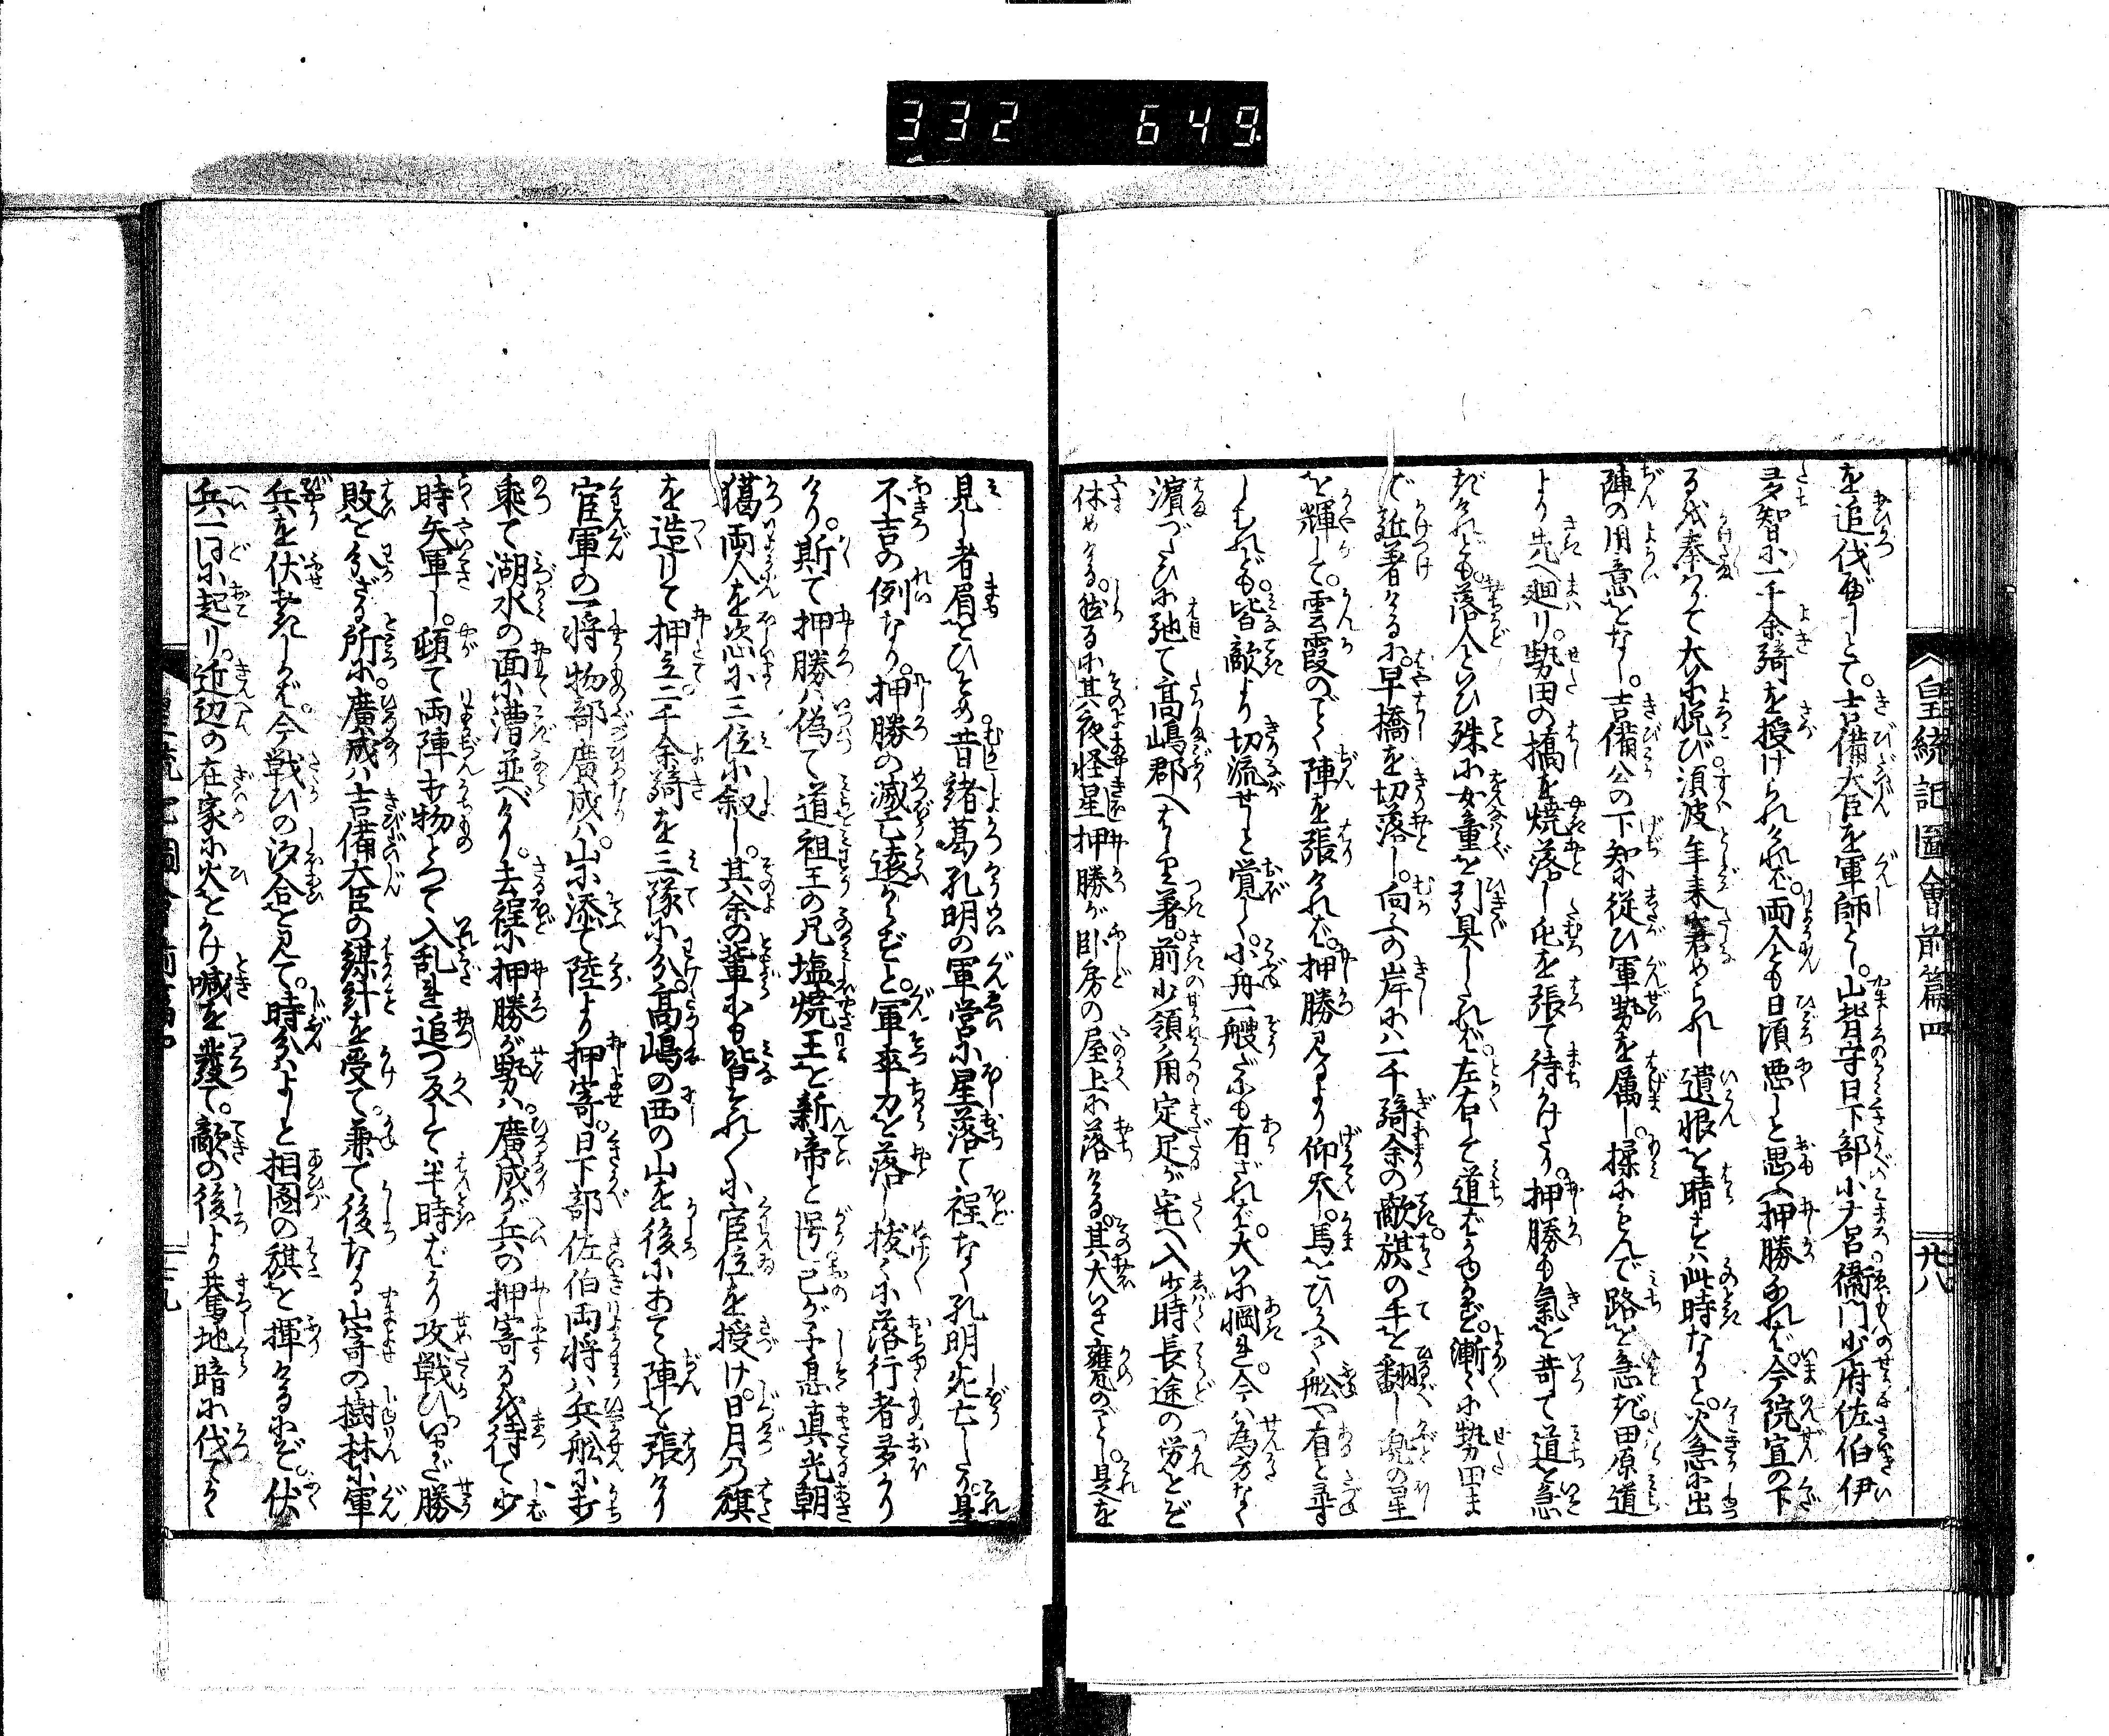 332 649
皇統記圖會前篇四
廿八
を追伐すべしとて。吉備大臣を軍師とし。山背守日下部小广呂衞門少府佐伯伊
多智に一千余騎を授けられければ。両人とも日頃悪しと思ふ押勝なれば。今院宣の下
るを奉りて大に悦び。須波年来窘められし遺恨を晴すは此時なりと。火急に出
陣の用意をなし。吉備公の下知に従ひ軍勢を属し。揉にもんで路を急ぎ田原道
より先へ廻り。勢田の橋を焼落し屯を張て待かけたり。押勝も氣を苛て道を急
ぎけれども。落人といひ殊に女童を引具したれば。左右して道ばかゆかず。漸々に勢田ま
で馳著けるに。早橋を切落し。向ふの岸には一千騎余の敵。旗の手を翻し兜の星
を輝して。雲霞のごとく陣を張ければ。押勝見るより仰天し。馬をひかへて舩や有と尋
しむれども。皆敵より切流せしと覚しく。小舟一艘だにも有ざれば。大に惘れ。今は為方なく
濱づたひに馳て高嶋郡へはしり着。前少領角定足が宅へ入。少時長途の労をぞ
休めける。然るに其夜怪星押勝が臥房の屋上に落ける。其大いさ甕のごとし。是を
見し者眉をひそめ。昔諸葛孔明の軍営に星落て程なく孔明死亡したり。是
不吉の例なり。押勝の滅亡遠からじと。軍卒力を落し拔々に落行者多かり
けり。斯て押勝は偽て道祖王の兄塩焼王を新帝と号し。己が子息真光朝
獦両人を恣に三位に叙し。其余の輩にも皆それ〱に官位を授け。日月の旗
を造りて押立。二千余騎を三隊に分。高嶋の西の山を後にあてて陣を張けり
官軍の一将物部廣成は。山に添て陸より押寄。日下部佐伯両将は兵舩に打
乗て湖水の面に漕並べけり。去程に押勝が勢は。廣成が兵の押寄るを待て少
時矢軍し。頓て両陣打物とつて入乱れ追つ返して半時ばかり攻戦ひ。いまだ勝
敗を分ざる所に。廣成は吉備大臣の謀計を受て。兼て後なる山寄の樹林に軍
兵を伏置しかば。今戦ひの汐合を見て。時分はよしと相圖の旗を揮けるにぞ。伏
兵一同に起り。近辺の在家に火をかけ。喊を發て。敵の後より驀地暗に伐てかゝ